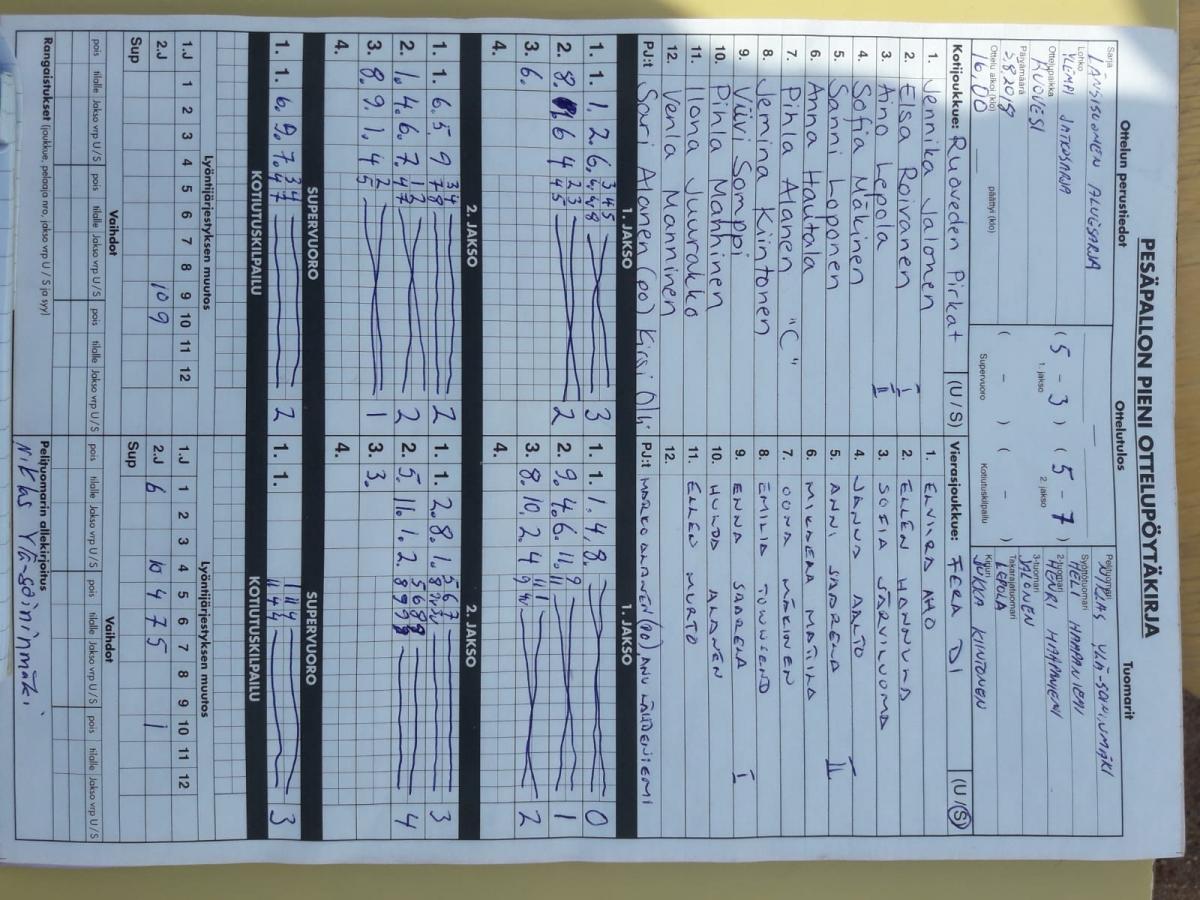 PESÄPALLON PIENI OTTELUPÖYTÄKIRJA
Ottelun perustiedot
Ottelutulos
Tuomarit
Sarja
LÄNSI-SUOMEN ALUESARJA
Lohko
YLEMPI JATKOSARJA
Ottelupaikka
RUOVESI
Päivämäärä
3.8.2019
Ottelu alkoi (klo)
16.00
päättyi (klo)
( 5 - 3 ) ( 5 - 7 )
1. jakso
2. jakso
( - ) ( - )
Supervuoro
Kotiutuskilpailu
Pelituomari
NIKLAS YLÄ-SOININMÄKI
Syöttötuomari
HELI HAAPANIEMI
2-tuomari
HENRI HAAPANIEMI
3-tuomari
JALONEN
Takarajatuomari
LEPOLA
Kirjuri
JUKKA KIINTONEN
Kotijoukkue: Ruoveden Pirkat (U/S)
1. Jennika Jalonen
2. Elsa Roivanen I
3. Aino Lepola II
4. Sofia Mäkinen
5. Sanni Lopponen
6. Anna Hautala
7. Pihla Alanen "C"
8. Jemina Kiintonen
9. Viivi Somppi
10. Pihla Mahhinen
11. Ilona Juurakko
12. Venla Manninen
PJ:t Sari Alanen (PO) Kirsi Oli
Vierasjoukkue: FERA D1 (U/S)
1. ELVIIRA AHO
2. ELLEN HANNUKNA
3. SOFIA JÄRVILUOMA
4. JANNA AALTO
5. ANNI SAARELA II
6. MIKAELA MATTILA
7. OONA MÄKINEN
8. EMILIA TOWNSEND
9. ENNA SAARELA I
10. HULDA ALANEN
11. ELLEN MURTO
12.
PJ:t MARKO ALANEN (PO), ANU LÄHDENIEMI
1. JAKSO
1. 1. 2. 6. 3 4 5 3
2. 8. 6 4 2 3 4 5 2
3. 6.
4.
1. JAKSO
1. 1. 4. 8. 0
2. 9. 4. 6. 11. 9 11 1
3. 8. 10. 2. 4 2
4.
2. JAKSO
1. 1. 6. 5. 9 3 4 7 8 2
2. 1. 4. 6. 7 1 2 4 7 2
3. 8. 9. 1. 4 2 5 1
4.
2. JAKSO
1. 1. 2. 8. 1. 5 6 7 3
2. 5. 11. 1. 2. 5 6 8 8 8 9 9 9 4
3. 3.
4.
SUPERVUORO
SUPERVUORO
KOTIUTUSKILPAILU
1. 1. 6. 9. 7. 3 4 4 7 2
KOTIUTUSKILPAILU
1. 1. 3
Lyöntijärjestyksen muutos
1 2 3 4 5 6 7 8 9 10 11 12
1.J
2.J 10 9
Sup
Lyöntijärjestyksen muutos
1 2 3 4 5 6 7 8 9 10 11 12
1.J
2.J 6 10 4 7 5 1
Sup
Vaihdot
pois tilalle Jakso vrp U/S pois tilalle Jakso vrp U/S pois tilalle Jakso vrp U/S
Vaihdot
pois tilalle Jakso vrp U/S pois tilalle Jakso vrp U/S pois tilalle Jakso vrp U/S
Rangaistukset (joukkue, pelaaja nro, jakso vrp U / S ja syy)
Pelituomarin allekirjoitus
Niklas Ylä-Soininmäki